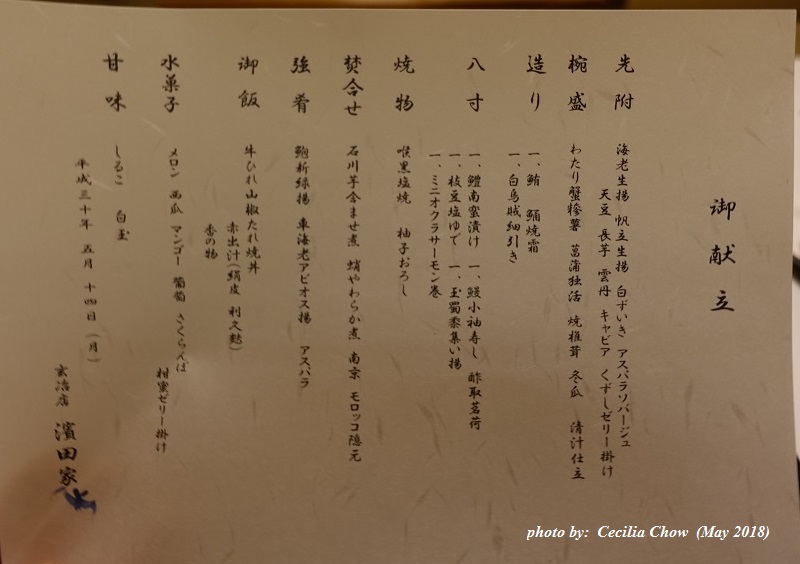 御献立
先附 海老生揚 帆立生揚 白ずいき アスパラソバージュ
天豆 長芋 雲丹 キャビア くずしゼリー掛け
椀盛 わたり蟹糝薯 菖蒲独活 焼椎茸 冬瓜 清汁仕立
造り 一、鮪 鰯焼霜
一、白烏賊細引き
八寸 一、鱧南蛮漬け 一、鰻小袖寿し 酢取茗荷
一、枝豆塩ゆで 一、玉蜀黍集い揚
一、ミニオクラサーモン巻
焼物 喉黒塩焼 柚子おろし
焚合せ 石川芋含ませ煮 蛸やわらか煮 南京 モロッコ隠元
強肴 鮑新緑揚 車海老アピオス揚 アスパラ
御飯 牛ひれ山椒たれ焼丼
赤出汁(絹皮 利久麩)
香の物
水菓子 メロン 西瓜 マンゴー 葡萄 さくらんぼ
柑蜜ゼリー掛け
甘味 しるこ 白玉
平成三十年 五月 十四日(月)
玄冶店 濱田家
photo by: Cecilia Chow (May 2018)